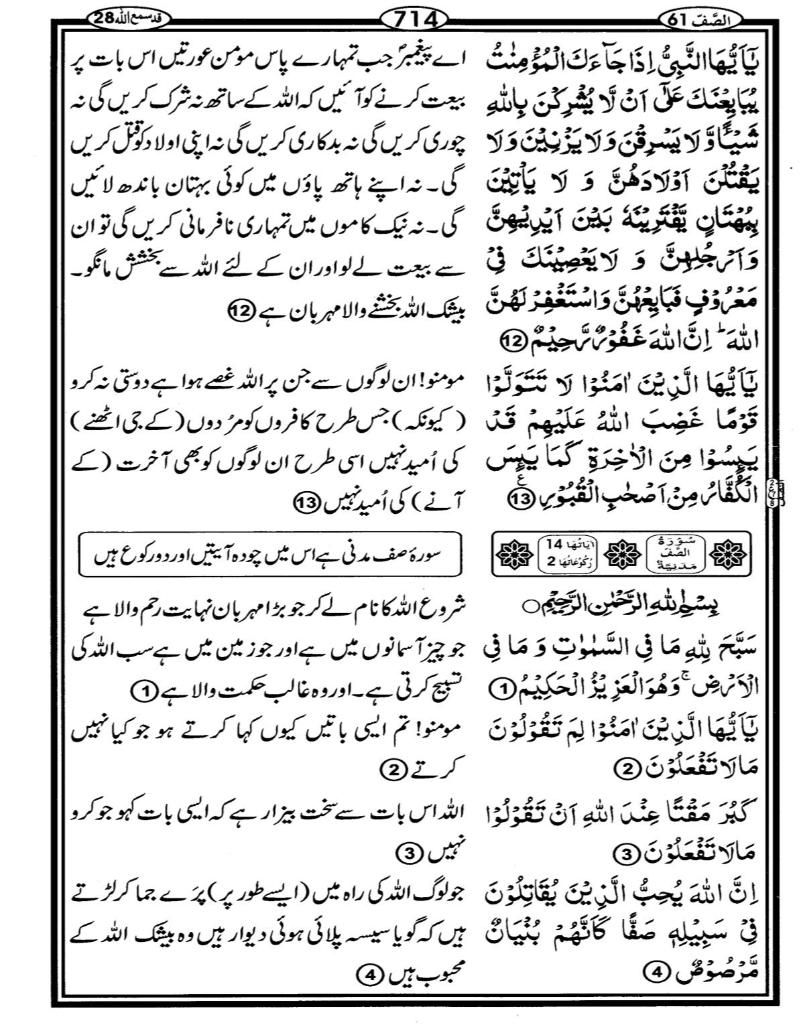 الصّف 61
714
قد سمع الله 28
يٰۤاَيُّهَا النَّبِىُّ اِذَا جَآءَكَ الْمُؤْمِنٰتُ
يُبَايِعْنَكَ عَلٰٓى اَنْ لَّا يُشْرِكْنَ بِاللّٰهِ
شَيْـًٔا وَّلَا يَسْرِقْنَ وَلَا يَزْنِيْنَ وَلَا
يَقْتُلْنَ اَوْلَادَهُنَّ وَ لَا يَاْتِيْنَ
بِبُهْتَانٍ يَّفْتَرِيْنَهٗ بَيْنَ اَيْدِيْهِنَّ
وَاَرْجُلِهِنَّ وَ لَا يَعْصِيْنَكَ فِىْ
مَعْرُوْفٍ فَبَايِعْهُنَّ وَاسْتَغْفِرْ لَهُنَّ
اللّٰهَ ؕ اِنَّ اللّٰهَ غَفُوْرٌ رَّحِيْمٌ 12
يٰۤاَيُّهَا الَّذِيْنَ اٰمَنُوْا لَا تَتَوَلَّوْا
قَوْمًا غَضِبَ اللّٰهُ عَلَيْهِمْ قَدْ
يَىِٕسُوْا مِنَ الْاٰخِرَةِ كَمَا يَىِٕسَ
الْكُفَّارُ مِنْ اَصْحٰبِ الْقُبُوْرِ 13
سُوْرَةُ الصَّفِّ مَدَنِيَّةٌ
اٰيَاتُهَا 14 رُكُوْعَاتُهَا 2
بِسْمِ اللّٰهِ الرَّحْمٰنِ الرَّحِيْمِ
سَبَّحَ لِلّٰهِ مَا فِى السَّمٰوٰتِ وَ مَا فِى
الْاَرْضِ ۚ وَهُوَ الْعَزِيْزُ الْحَكِيْمُ 1
يٰۤاَيُّهَا الَّذِيْنَ اٰمَنُوْا لِمَ تَقُوْلُوْنَ
مَا لَا تَفْعَلُوْنَ 2
كَبُرَ مَقْتًا عِنْدَ اللّٰهِ اَنْ تَقُوْلُوْا
مَا لَا تَفْعَلُوْنَ 3
اِنَّ اللّٰهَ يُحِبُّ الَّذِيْنَ يُقَاتِلُوْنَ
فِىْ سَبِيْلِهٖ صَفًّا كَاَنَّهُمْ بُنْيَانٌ
مَّرْصُوْصٌ 4
اے پیغمبرؐ جب تمہارے پاس مومن عورتیں اس بات پر
بیعت کرنے کو آئیں کہ اللہ کے ساتھ نہ شرک کریں گی نہ
چوری کریں گی نہ بدکاری کریں گی نہ اپنی اولاد کو قتل کریں
گی۔ نہ اپنے ہاتھ پاؤں میں کوئی بہتان باندھ لائیں
گی۔ نہ نیک کاموں میں تمہاری نافرمانی کریں گی تو ان
سے بیعت لے لو اور ان کے لئے اللہ سے بخشش مانگو۔
بیشک اللہ بخشنے والا مہربان ہے 12
مومنو! ان لوگوں سے جن پر اللہ غصے ہوا ہے دوستی نہ کرو
(کیونکہ) جس طرح کافروں کو مُردوں (کے جی اٹھنے)
کی اُمید نہیں اسی طرح ان لوگوں کو بھی آخرت (کے
آنے) کی اُمید نہیں 13
سورۂ صف مدنی ہے اس میں چودہ آیتیں اور دو رکوع ہیں
شروع اللہ کا نام لے کر جو بڑا مہربان نہایت رحم والا ہے
جو چیز آسمانوں میں ہے اور جو زمین میں ہے سب اللہ کی
تسبیح کرتی ہے۔ اور وہ غالب حکمت والا ہے 1
مومنو! تم ایسی باتیں کیوں کہا کرتے ہو جو کیا نہیں
کرتے 2
اللہ اس بات سے سخت بیزار ہے کہ ایسی بات کہو جو کرو
نہیں 3
جو لوگ اللہ کی راہ میں (ایسے طور پر) پرَے جما کر لڑتے
ہیں کہ گویا سیسہ پلائی ہوئی دیوار ہیں وہ بیشک اللہ کے
محبوب ہیں 4